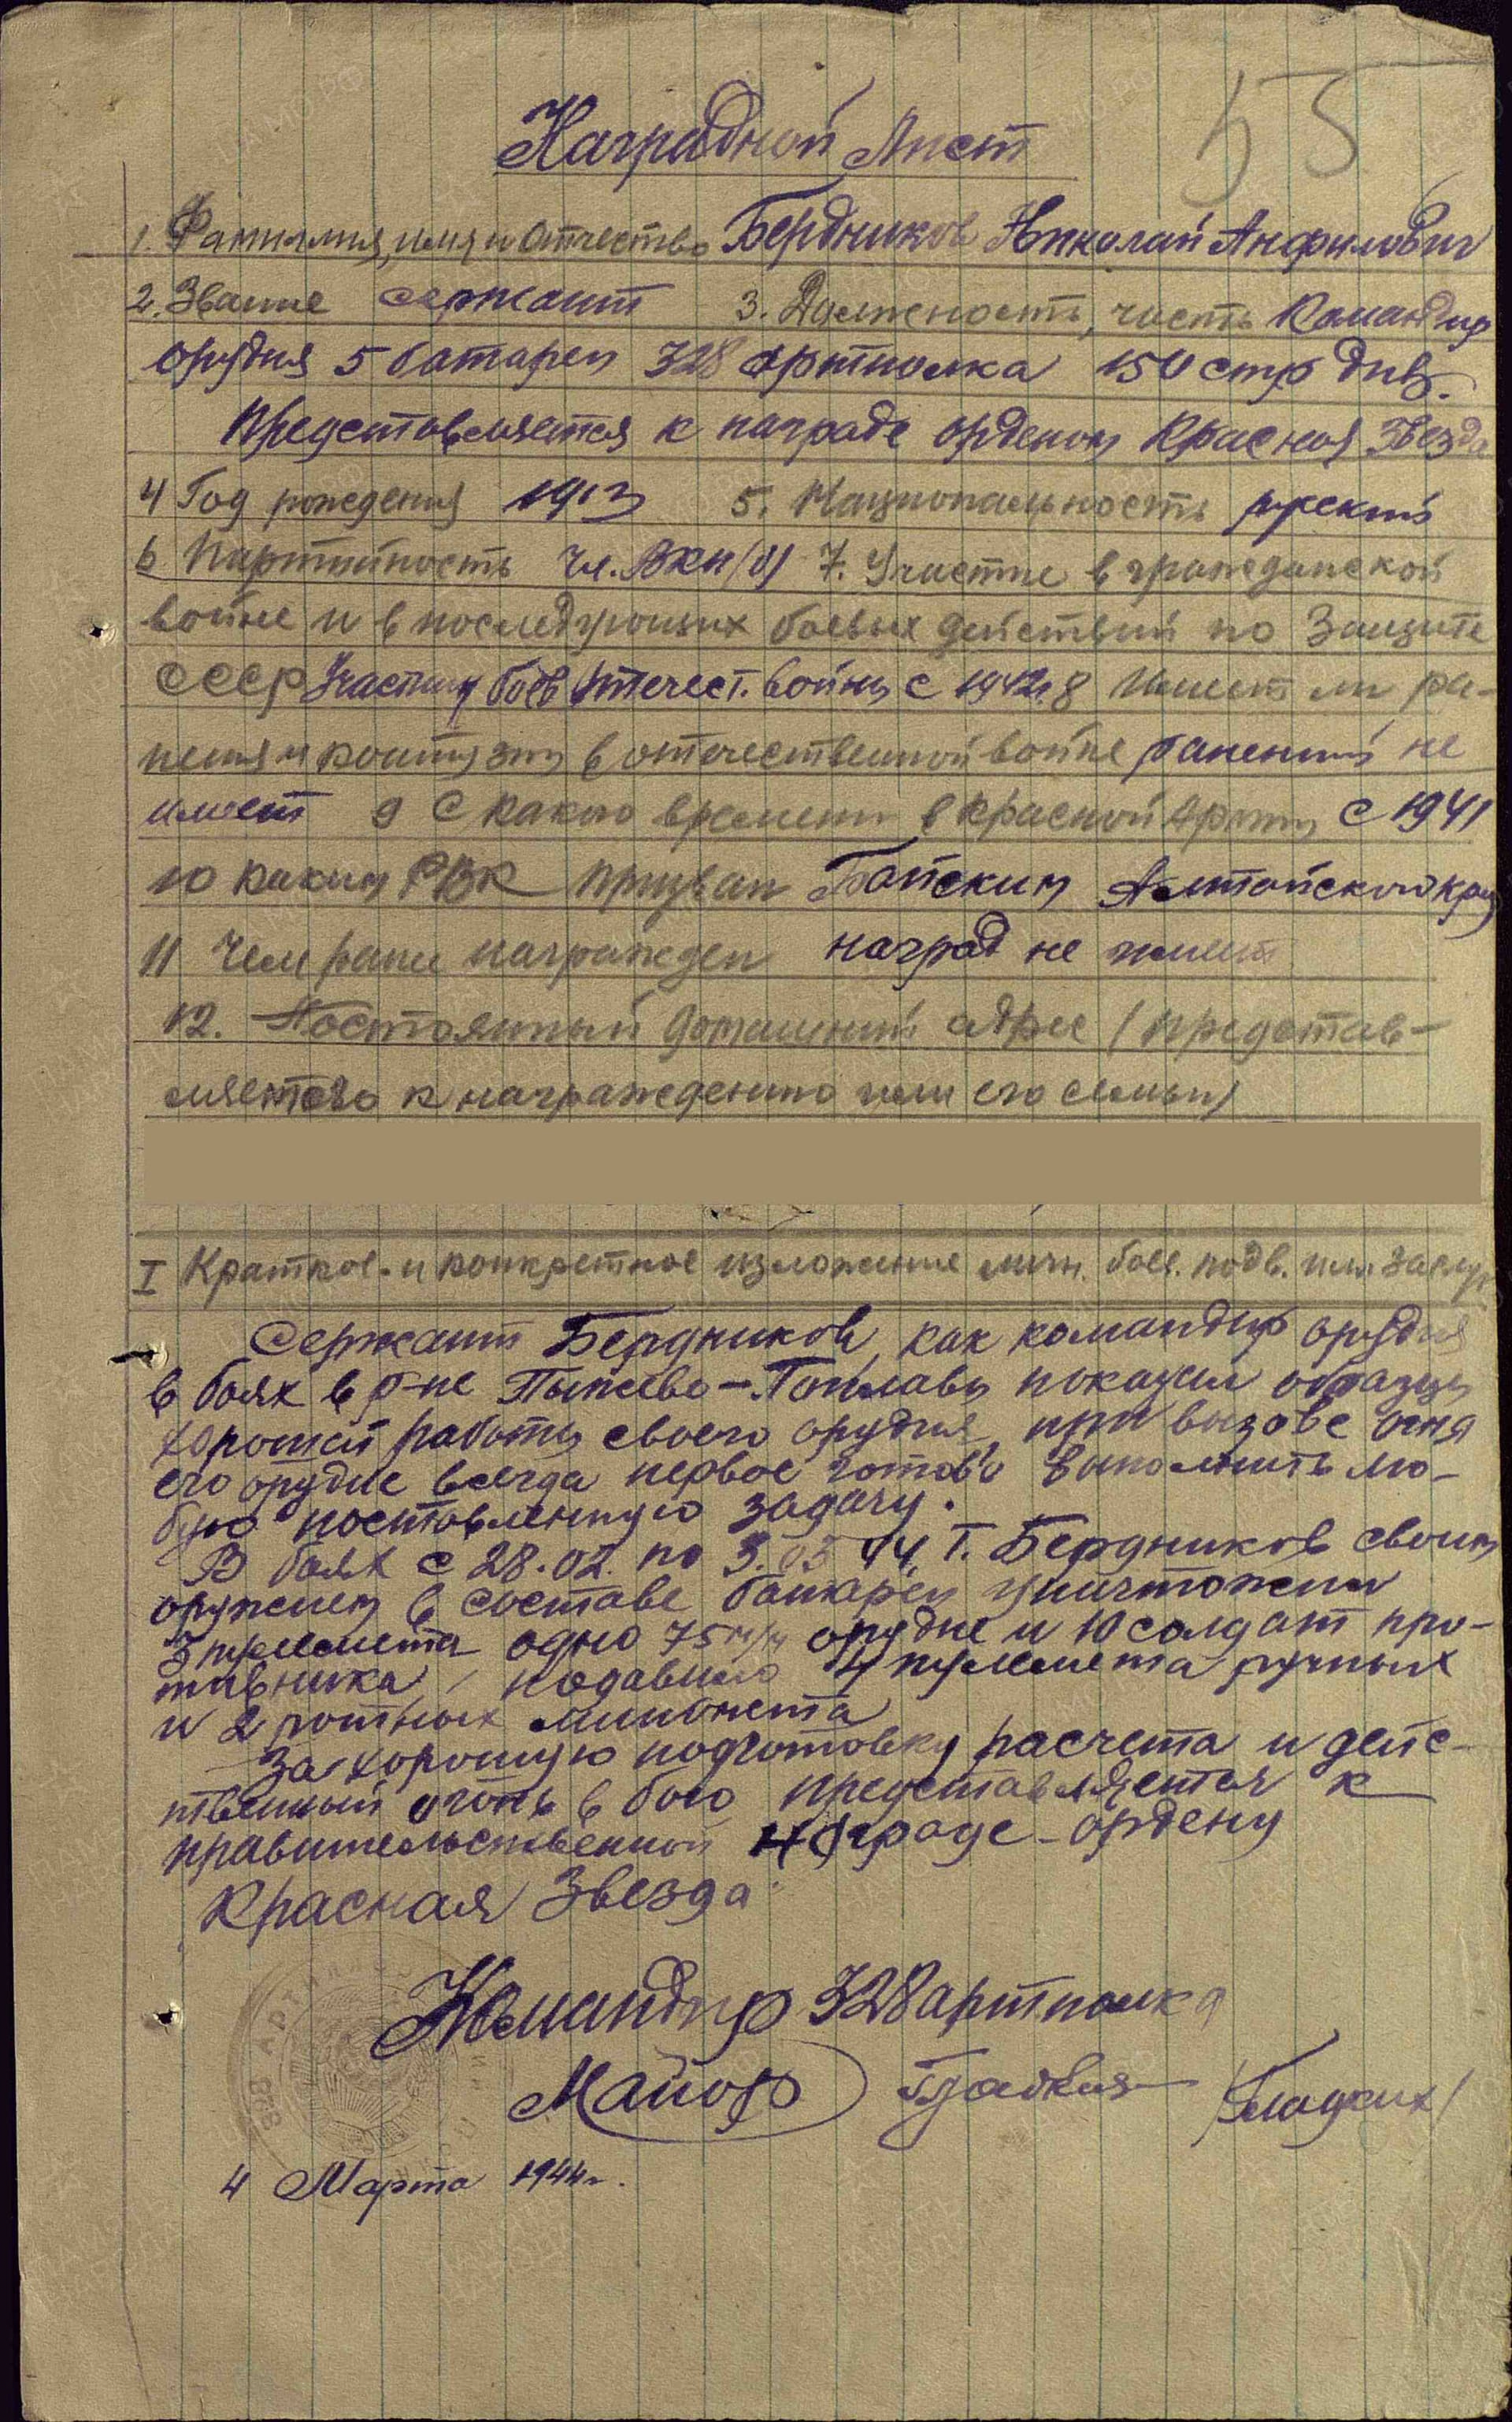 55
Наградной Лист
1. Фамилия, имя и Отчество Бердников Николай Анфилович
2. Звание сержант 3. Должность, часть Командир
орудия 5 батареи 328 артполка 150 стр див.
Представляется к награде орденом Красная Звезда
4 Год рождения 1913 5. Национальность русский
6 Партийность чл. ВКП(б) 7. Участие в гражданской
войне и в последующих боевых действий по Защите
СССР Участник боев Отечест. войны с 1942г. 8 Имеет ли ра-
нения и контузии в отечественной войне ранений не
имеет 9 С какого времени в Красной Армии с 1941
10 каким РВК призван Бийским Алтайского края
11 Чем ранее награжден наград не имеет
12. Постоянный домашний адрес (представ-
ляемого к награждению или его семьи)
I Краткое и конкретное изложение личн. боев. подв. или заслуг
Сержант Бердников, как командир орудия
в боях в р-не Пыжево-Поплавы показал образцы
хорошей работы своего орудия, при вызове огня
его орудие всегда первое готово выполнить лю-
бую поставленную задачу.
В боях с 28.02. по 3.03 44 т. Бердников своим
оружием в составе батареи уничтожил
3 пулемета одно 75 м/м орудие и 10 солдат про-
тивника, подавило 4 пулемета ручных
и 2 ротных миномета
За хорошую подготовку расчета и дейс-
твенный огонь в бою представляется к
правительственной награде - ордену
Красная Звезда.
Командир 328 артполка
Майор /Гладких/
4 Марта 1944г.